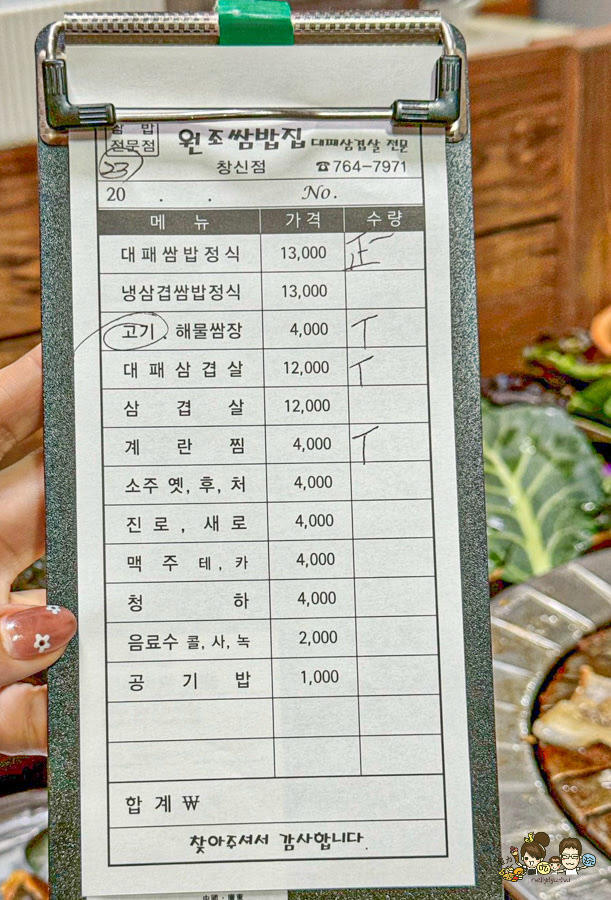 쌈 밥
전문점
원조쌈밥집 대패삼겹살 전문
23
창신점 ☎764-7971
20 . . No.
메 뉴 가 격 수 량
대 패 쌈 밥 정 식 13,000 正
냉삼겹쌈밥정식 13,000
고기, 해물쌈장 4,000 T
대 패 삼 겹 살 12,000 T
삼 겹 살 12,000
계 란 찜 4,000 T
소주 옛, 후, 처 4,000
진 로 , 새 로 4,000
맥 주 테, 카 4,000
청 하 4,000
음료수 콜, 사, 녹 2,000
공 기 밥 1,000
합 계 ₩
찾아주셔서 감사합니다.